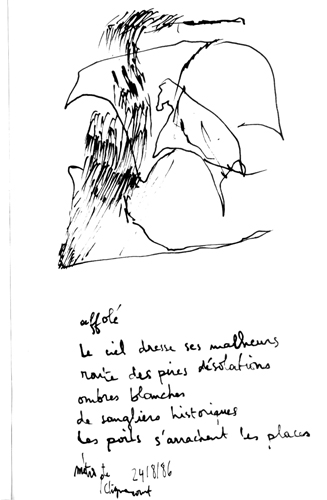 affolé
le ciel dresse ses malheurs
route des pires désolations
ombres blanches
de sangliers historiques
les poils s'arrachent les places
24/8/86